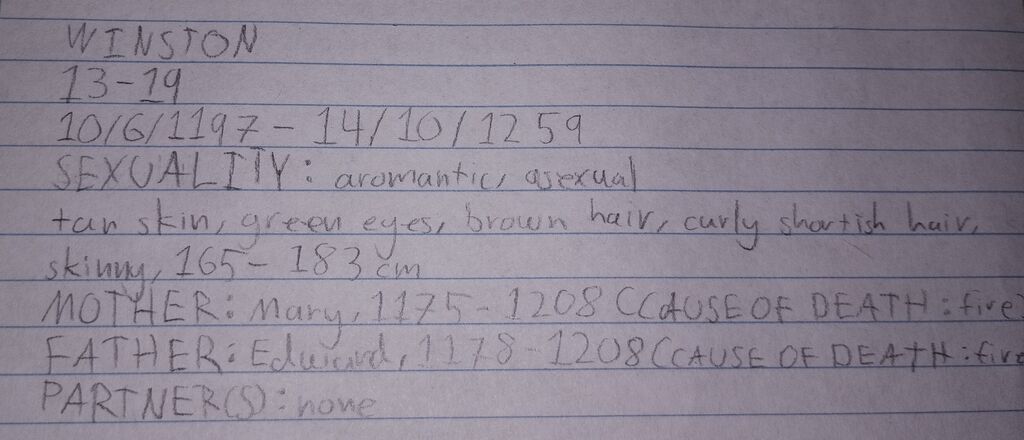 WINSTON
13-19
10/6/1197 - 14/10/1259
SEXUALITY: aromantic, asexual
tan skin, green eyes, brown hair, curly shortish hair,
skinny, 165 - 183 cm
MOTHER: Mary, 1175 - 1208 (CAUSE OF DEATH: fire)
FATHER: Edward, 1178-1208 (CAUSE OF DEATH: fire
PARTNER(S): none